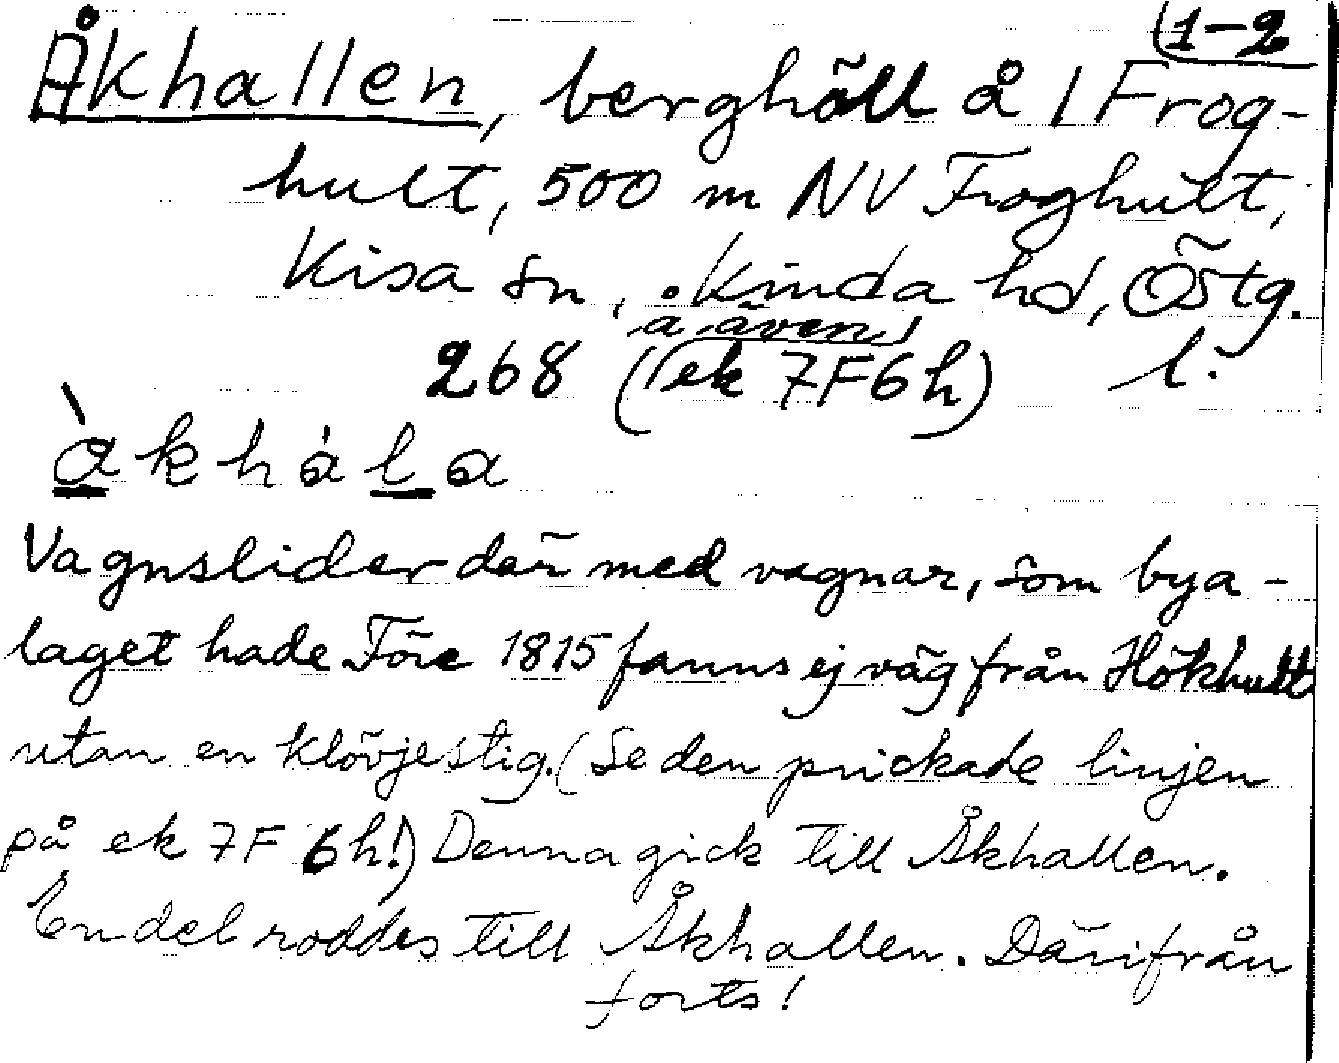 1-2
Åkhallen, berghäll å 1 Frog-
hult, 500 m NV Froghult,
Kisa sn, Kinda hd, Östg.
a även
268 (ek 7F6h) l.
àkhàla
Vagnslider där med vagnar, som bya-
laget hade Före 1815 fanns ej väg från Hökhult
utan en klövjestig. (Se den prickade linjen
på ek 7F 6h!) Denna gick till Åkhallen.
En del roddes till Åkhallen. Därifrån
forts!